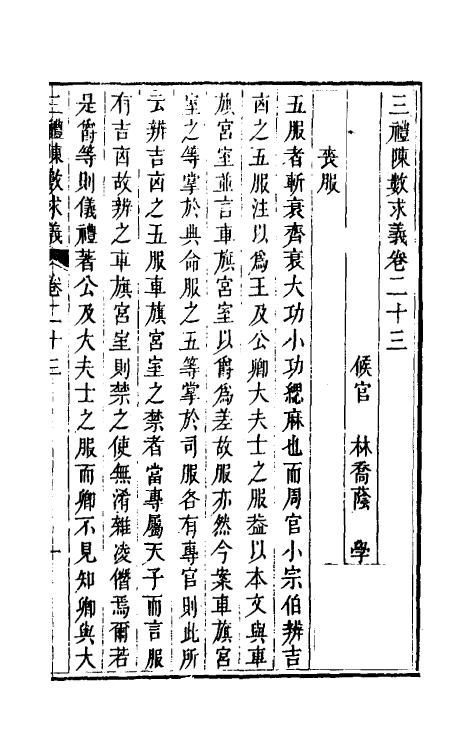 三禮陳數求義卷二十三
候官 林喬蔭 學
喪服
五服者斬衰齊衰大功小功緦麻也而周官小宗伯辨吉
凶之五服注以爲王及公卿大夫士之服葢以本文與車
旗宮室並言車旗宮室以爵爲差故服亦然今案車旗宮
室之等掌於典命服之五等掌於司服各有專官則此所
云辨吉凶之五服車旗宮室之禁者當專屬天子而言服
有吉凶故辨之車旗宮室則禁之使無淆雜凌僭焉爾若
是爵等則儀禮著公及大夫士之服而卿不見知卿與大
三禮陳數求義 卷二十三 一